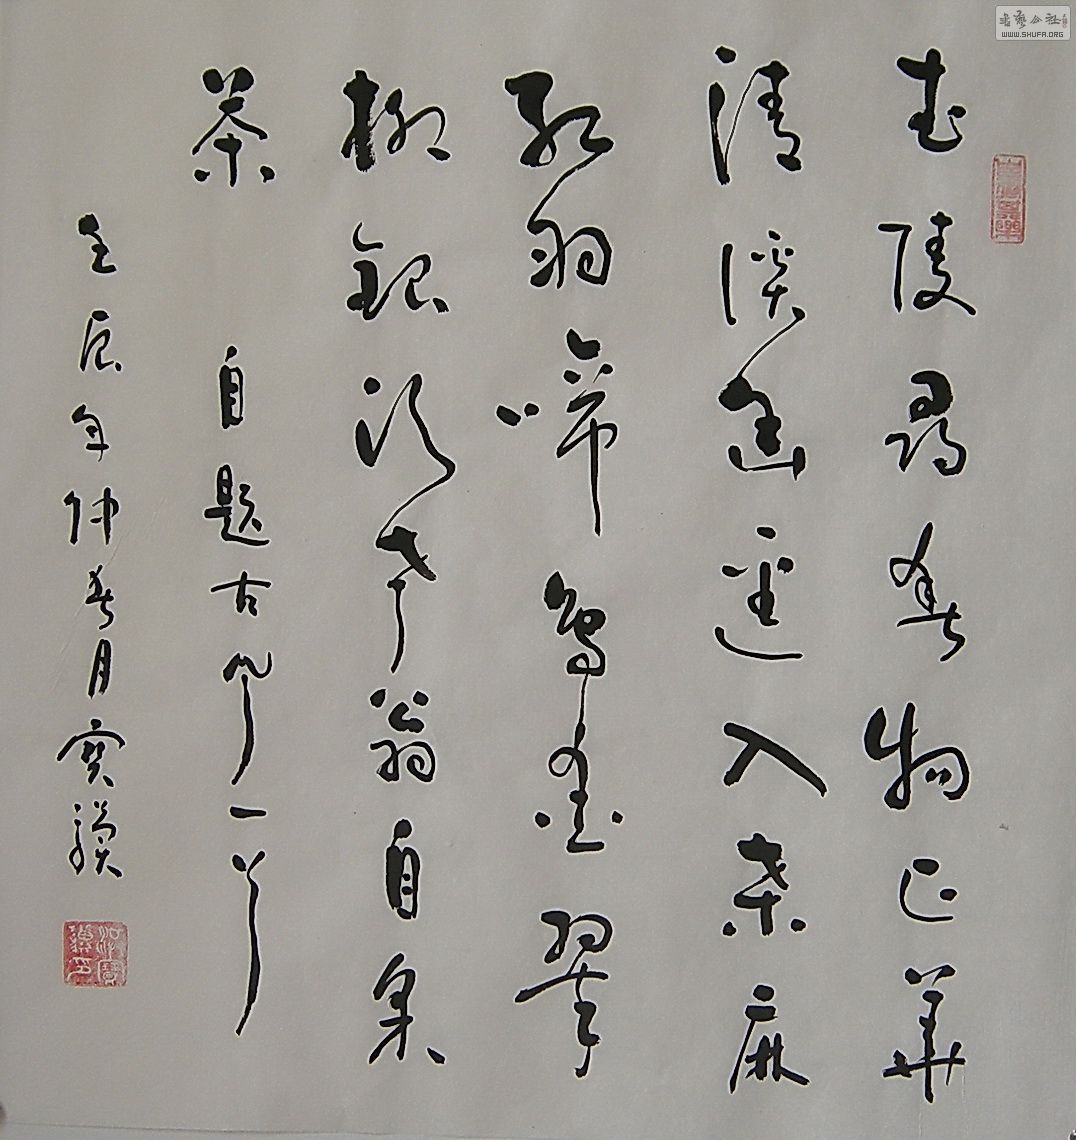 書藝公社
WWW.SHUFA.ORG
武陵尋春物正華
清溪幽逕入桑麻
羽啼翠
柳銀須老翁自采
茶 自題古風一首
壬辰年仲春月寶